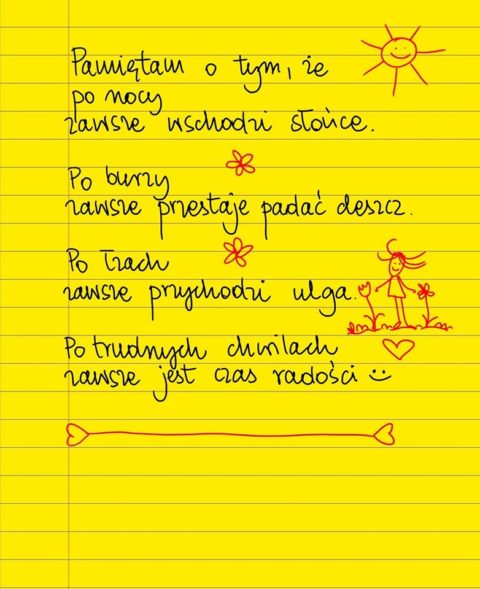 Pamiętam o tym, że
po nocy
zawsze wschodzi słońce.
Po burzy
zawsze przestaje padać deszcz.
Po łzach
zawsze przychodzi ulga.
Po trudnych chwilach
zawsze jest czas radości :)